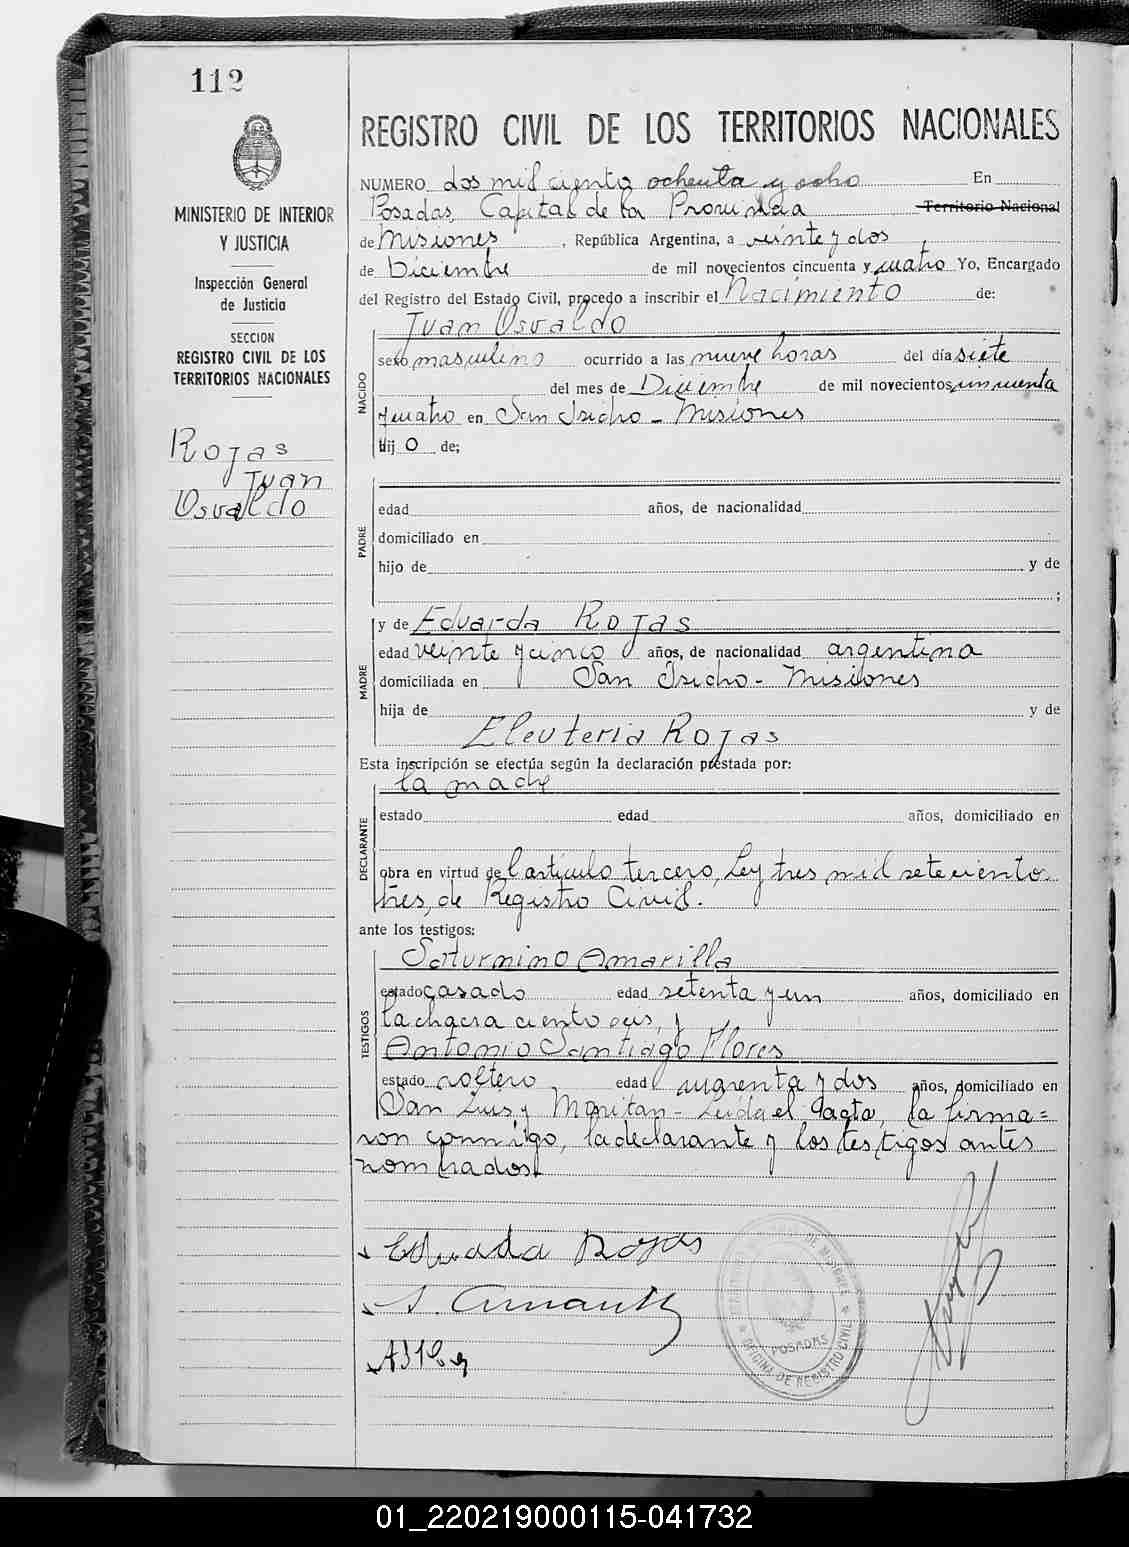 112
MINISTERIO DE INTERIOR
Y JUSTICIA
Inspección General
de Justicia
SECCION
REGISTRO CIVIL DE LOS
TERRITORIOS NACIONALES
Rojas
Juan
Osvaldo
REGISTRO CIVIL DE LOS TERRITORIOS NACIONALES
NUMERO dos mil ciento ochenta y ocho En
Posadas, Capital de la Provincia Territorio Nacional
de Misiones, República Argentina, a veinte y dos
de Diciembre de mil novecientos cincuenta y cuatro Yo, Encargado
del Registro del Estado Civil, procedo a inscribir el Nacimiento de:
NACIDO
Juan Osvaldo
sexo masculino ocurrido a las nueve horas del día siete
del mes de Diciembre de mil novecientos cincuenta
y cuatro en San Isidro - Misiones
hij o de;
PADRE
edad años, de nacionalidad
domiciliado en
hijo de y de
;
MADRE
y de Eduarda Rojas
edad veinte y cinco años, de nacionalidad argentina
domiciliada en San Isidro - Misiones
hija de y de
Eleuteria Rojas
Esta inscripción se efectúa según la declaración prestada por:
DECLARANTE
la madre
estado edad años, domiciliado en
obra en virtud de l artículo tercero, Ley tres mil setecientos
tres, de Registro Civil.
ante los testigos:
TESTIGOS
Saturnino Amarilla
estado casado edad setenta y un años, domiciliado en
la chacra ciento seis, y
Antonio Santiago Flores
estado soltero edad cuarenta y dos años, domiciliado en
San Luis y Moritan - Leída el acta, la firma=
ron conmigo, la declarante y los testigos antes
nombrados.
Eduarda Rojas
S. Amarilla
OFICINA DE REGISTRO CIVIL
POSADAS
01_220219000115-041732